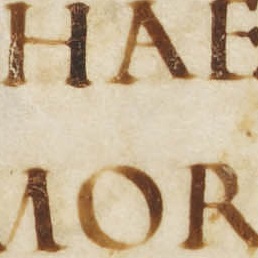 HAE
MOR